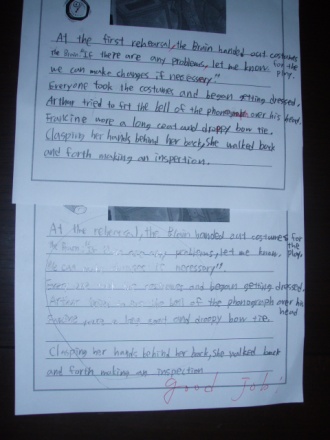 9
At the first rehearsal, the Brain handed out costumes for the play.
the Brain "If there are any problems, let me know
we can make changes if necessery!"
Everyone took the costumes and began getting dressed.
Arthur tried to fit the bell of the phonograph over his head.
Francine wore a long coat and droppy bow tie.
Clasping her hands behind her back, she walked back
and forth making an inspection.
At the rehearsal, the Brain handed out costumes for the play.
the Brain problems, let me know.
We can make changes if necessary!".
costumes and began getting dressed.
Arthur the bell of the phonograph over his head
Francine a long coat and droopy bow tie.
Clasping her hands behind her back, she walked back
and forth making an inspection
good job!